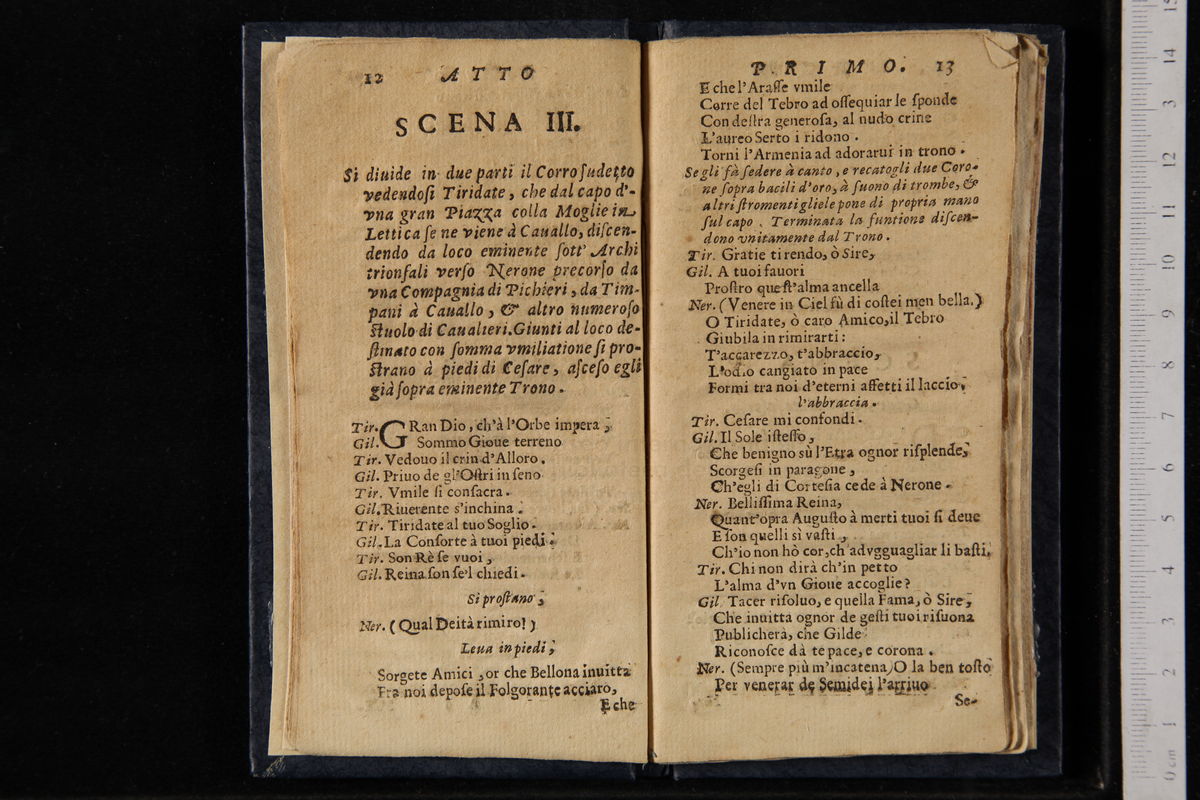 12 ATTO
SCENA III.
Si diuide in due parti il Corro sudetto
vedendosi Tiridate, che dal capo d'-
vna gran Piazza colla Moglie in
Lettica se ne viene à Cauallo, discen-
dendo da loco eminente sott' Archi
trionfali verso Nerone precorso da
vna Compagnia di Pichieri, da Tim-
pani à Cauallo, & altro numeroso
stuolo di Caualieri. Giunti al loco de-
stinato con somma vmiliatione si pro-
strano à piedi di Cesare, asceso egli
già sopra eminente Trono.
Tir. GRan Dio, ch'à l'Orbe impera;
Gil. Sommo Gioue terreno
Tir. Vedouo il crin d'Alloro.
Gil. Priuo de gl'Ostri in seno
Tir. Vmile si consacra.
Gil. Riuerente s'inchina.
Tir. Tiridate al tuo Soglio.
Gil. La Consorte à tuoi piedi.
Tir. Son Rè se vuoi,
Gil. Reina son se'l chiedi.
Si prostano;
Ner. (Qual Deità rimiro!)
Leua in piedi;
Sorgete Amici, or che Bellona inuitta
Fra noi depose il Folgorante acciaro,
E che
PRIMO. 13
E che l'Arasse vmile
Corre del Tebro ad ossequiar le sponde
Con destra generosa, al nudo crine
L'aureo Serto i ridono.
Torni l'Armenia ad adorarui in trono.
Se gli fà sedere à canto, e recatogli due Coro-
ne sopra bacili d'oro, à suono di trombe, &
altri stromenti gliele pone di propria mano
sul capo. Terminata la funtione discen-
dono vnitamente dal Trono.
Tir. Gratie ti rendo, ò Sire,
Gil. A tuoi fauori
Prostro quest'alma ancella
Ner. (Venere in Ciel fù di costei men bella.)
O Tiridate, ò caro Amico, il Tebro
Giubila in rimirarti:
T'accarezzo, t'abbraccio,
L'odio cangiato in pace
Formi tra noi d'eterni affetti il laccio,
l'abbraccia.
Tir. Cesare mi confondi.
Gil. Il Sole istesso,
Che benigno sù l'Etra ognor risplende,
Scorgesi in paragone,
Ch'egli di Cortesia cede à Nerone.
Ner. Bellissima Reina,
Quant'opra Augusto à merti tuoi si deue
E son quelli sì vasti,
Ch'io non hò cor, ch'advgguagliar li basti.
Tir. Chi non dirà ch'in petto
L'alma d'vn Gioue accoglie?
Gil. Tacer risoluo, e quella Fama, ò Sire,
Che inuitta ognor de gesti tuoi risuona
Publicherà, che Gilde
Riconosce dà te pace, e corona.
Ner. (Sempre più m'incatena) O la ben tosto
Per venerar de Semidei l'arriuo
Se-